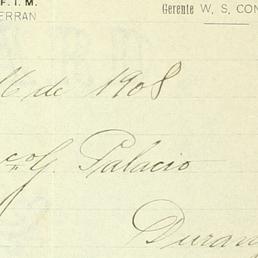 F. I. M.
ERRAN
Gerente W. S. CON
16 de 1908
co. G. Palacio
Durang